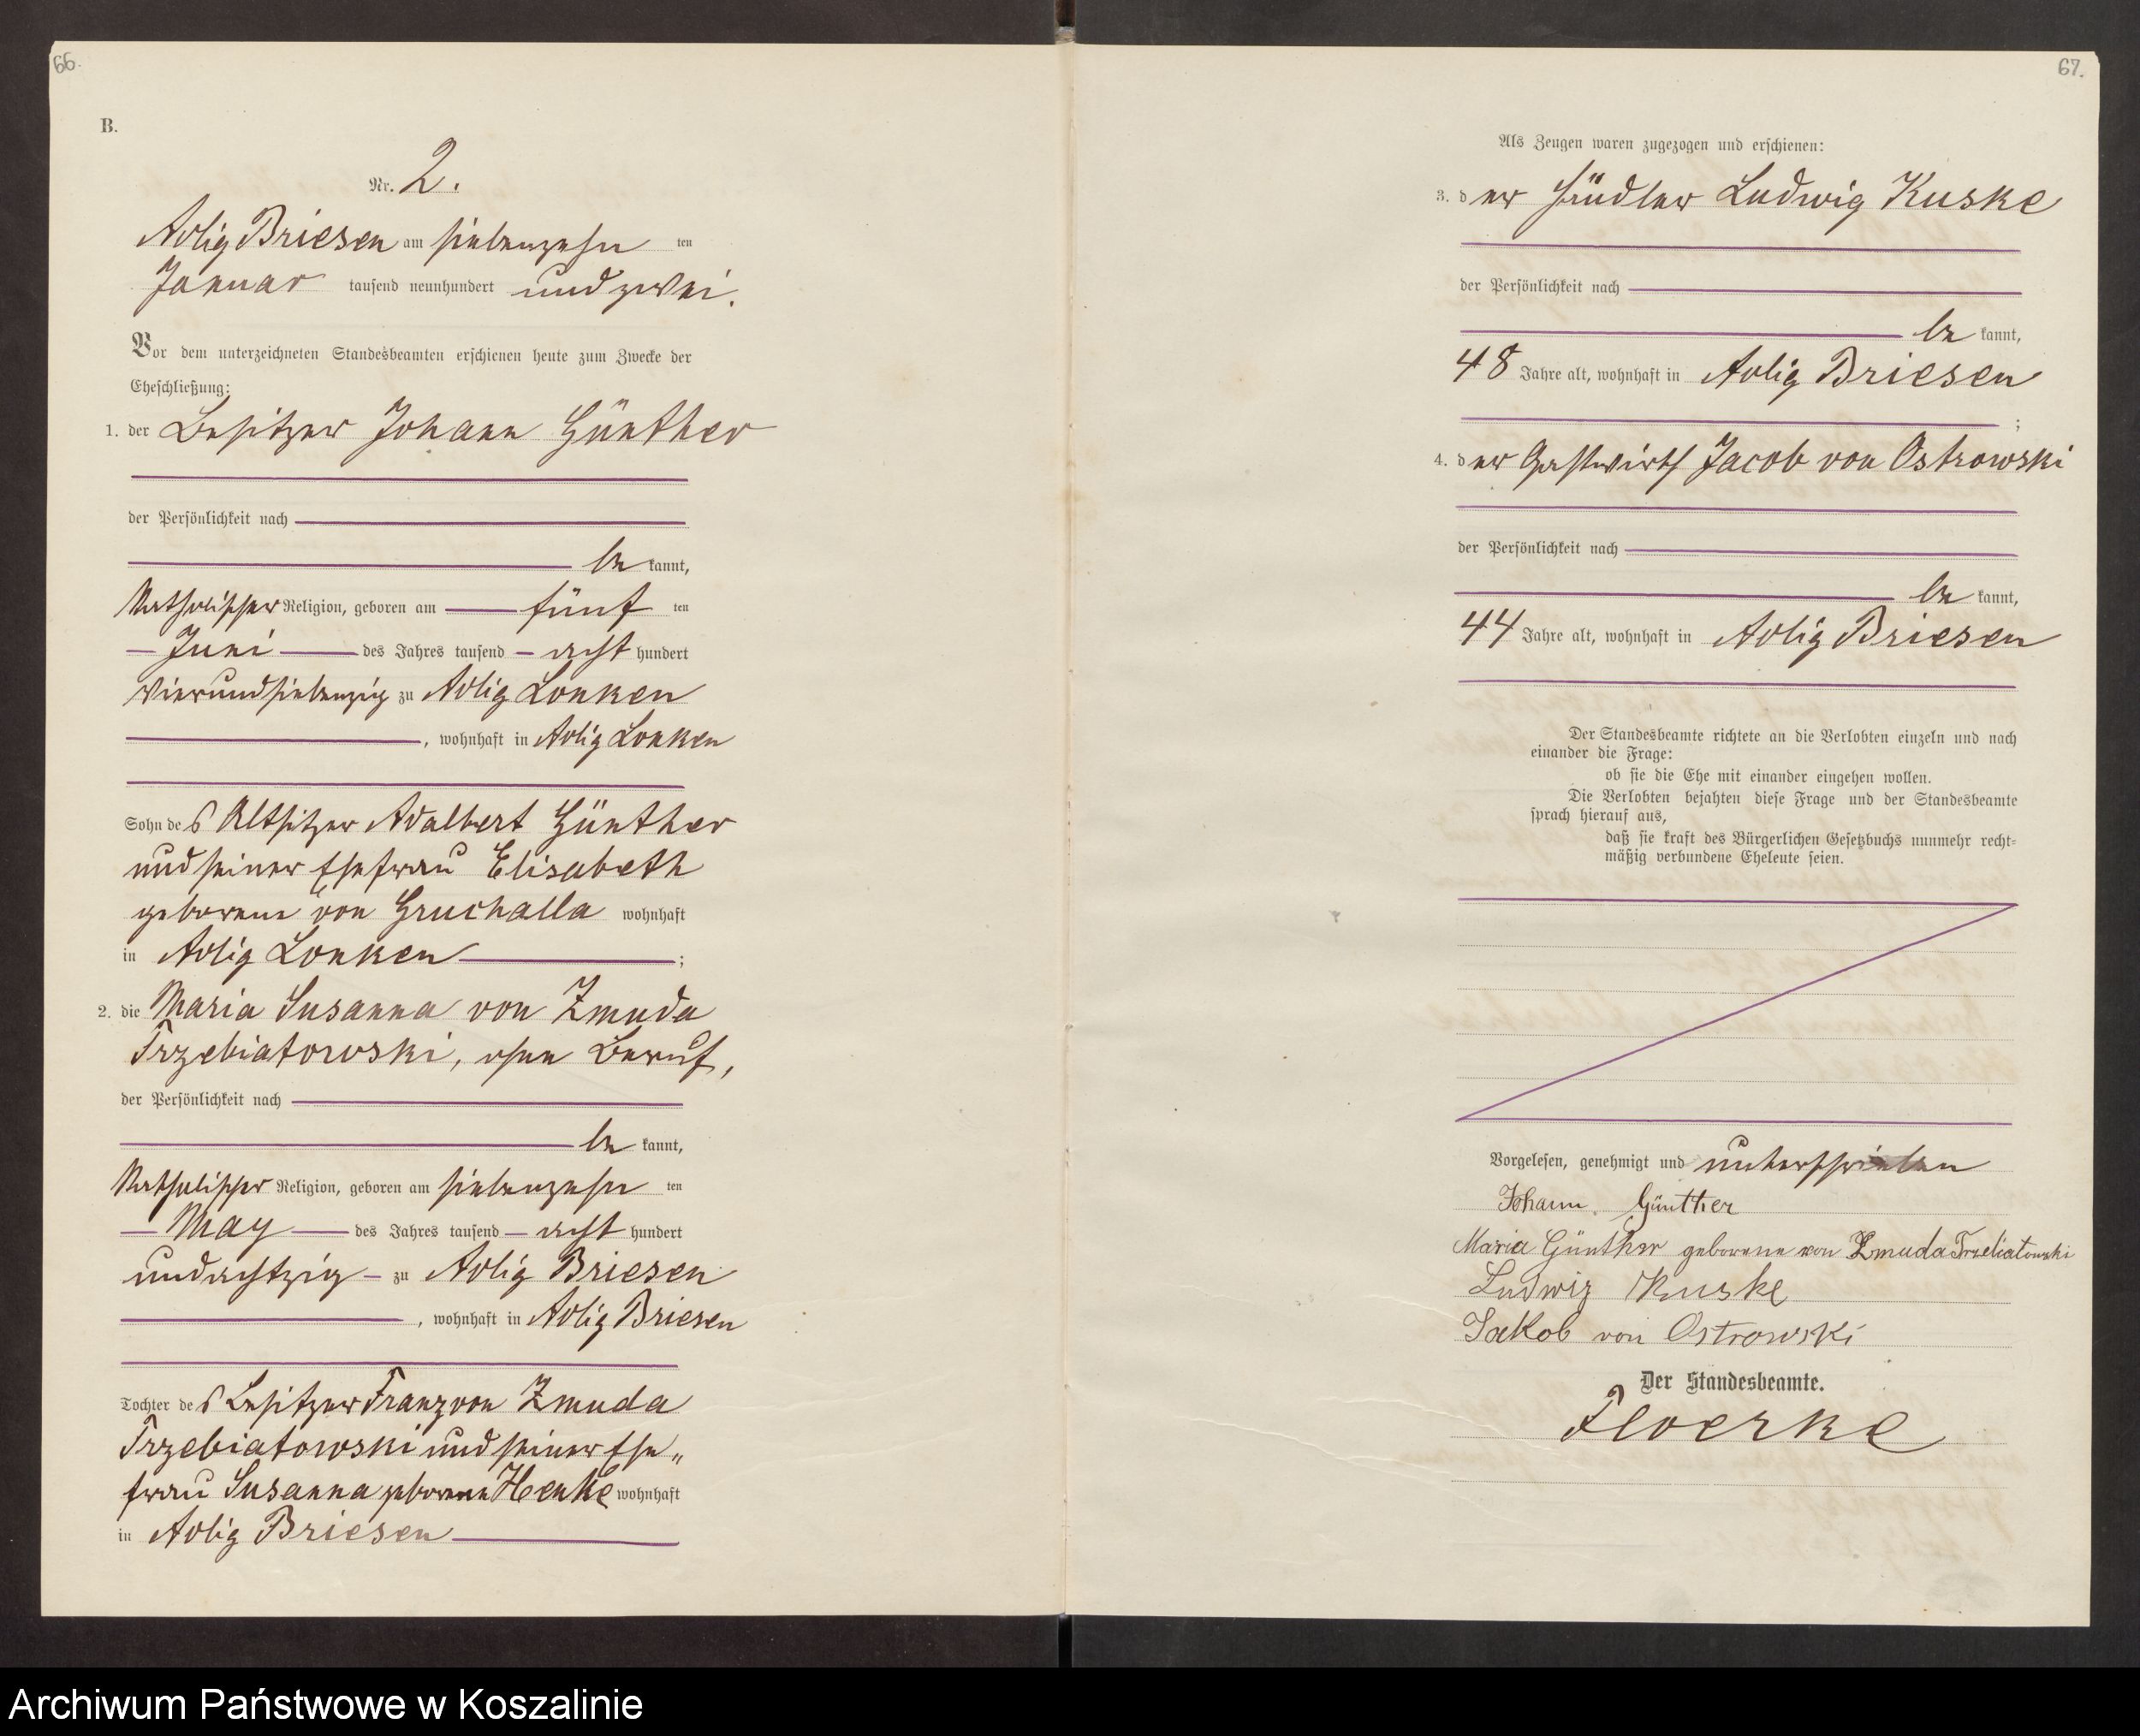 66.
B.
Nr. 2.
Adlig Briesen am siebenzehn ten
Januar tausend neunhundert und zwei.
Vor dem unterzeichneten Standesbeamten erschienen heute zum Zwecke der
Eheschließung:
1. der Besitzer Johann Günther
der Persönlichkeit nach
be kannt,
Katholischer Religion, geboren am fünf ten
Juni des Jahres tausend acht hundert
vierundsiebenzig zu Adlig Lonken
, wohnhaft in Adlig Lonken
Sohn des Altsitzer Adalbert Günther
und seiner Ehefrau Elisabeth
geborene von Gruchalla wohnhaft
in Adlig Lonken ;
2. die Maria Susanna von Zmuda
Trzebiatowski, ohne Beruf,
der Persönlichkeit nach
be kannt,
Katholischer Religion, geboren am siebenzehn ten
May des Jahres tausend acht hundert
undachtzig zu Adlig Briesen
, wohnhaft in Adlig Briesen
Tochter des Besitzer Franz von Zmuda
Trzebiatowski und seiner Ehe„
frau Susanna geborene Henke wohnhaft
in Adlig Briesen
67.
Als Zeugen waren zugezogen und erschienen:
3. der Händler Ludwig Kuske
der Persönlichkeit nach
be kannt,
48 Jahre alt, wohnhaft in Adlig Briesen
;
4. der Gastwirth Jacob von Ostrowski
der Persönlichkeit nach
be kannt,
44 Jahre alt, wohnhaft in Adlig Briesen
Der Standesbeamte richtete an die Verlobten einzeln und nach
einander die Frage:
ob sie die Ehe mit einander eingehen wollen.
Die Verlobten bejahten diese Frage und der Standesbeamte
sprach hierauf aus,
daß sie kraft des Bürgerlichen Gesetzbuchs nunmehr recht-
mäßig verbundene Eheleute seien.
Vorgelesen, genehmigt und unterschrieben
Johann Günther
Maria Günther geborene von Zmuda Trzebiatowski
Ludwig Kuske
Jakob von Ostrowski
Der Standesbeamte.
Floerke
Archiwum Państwowe w Koszalinie